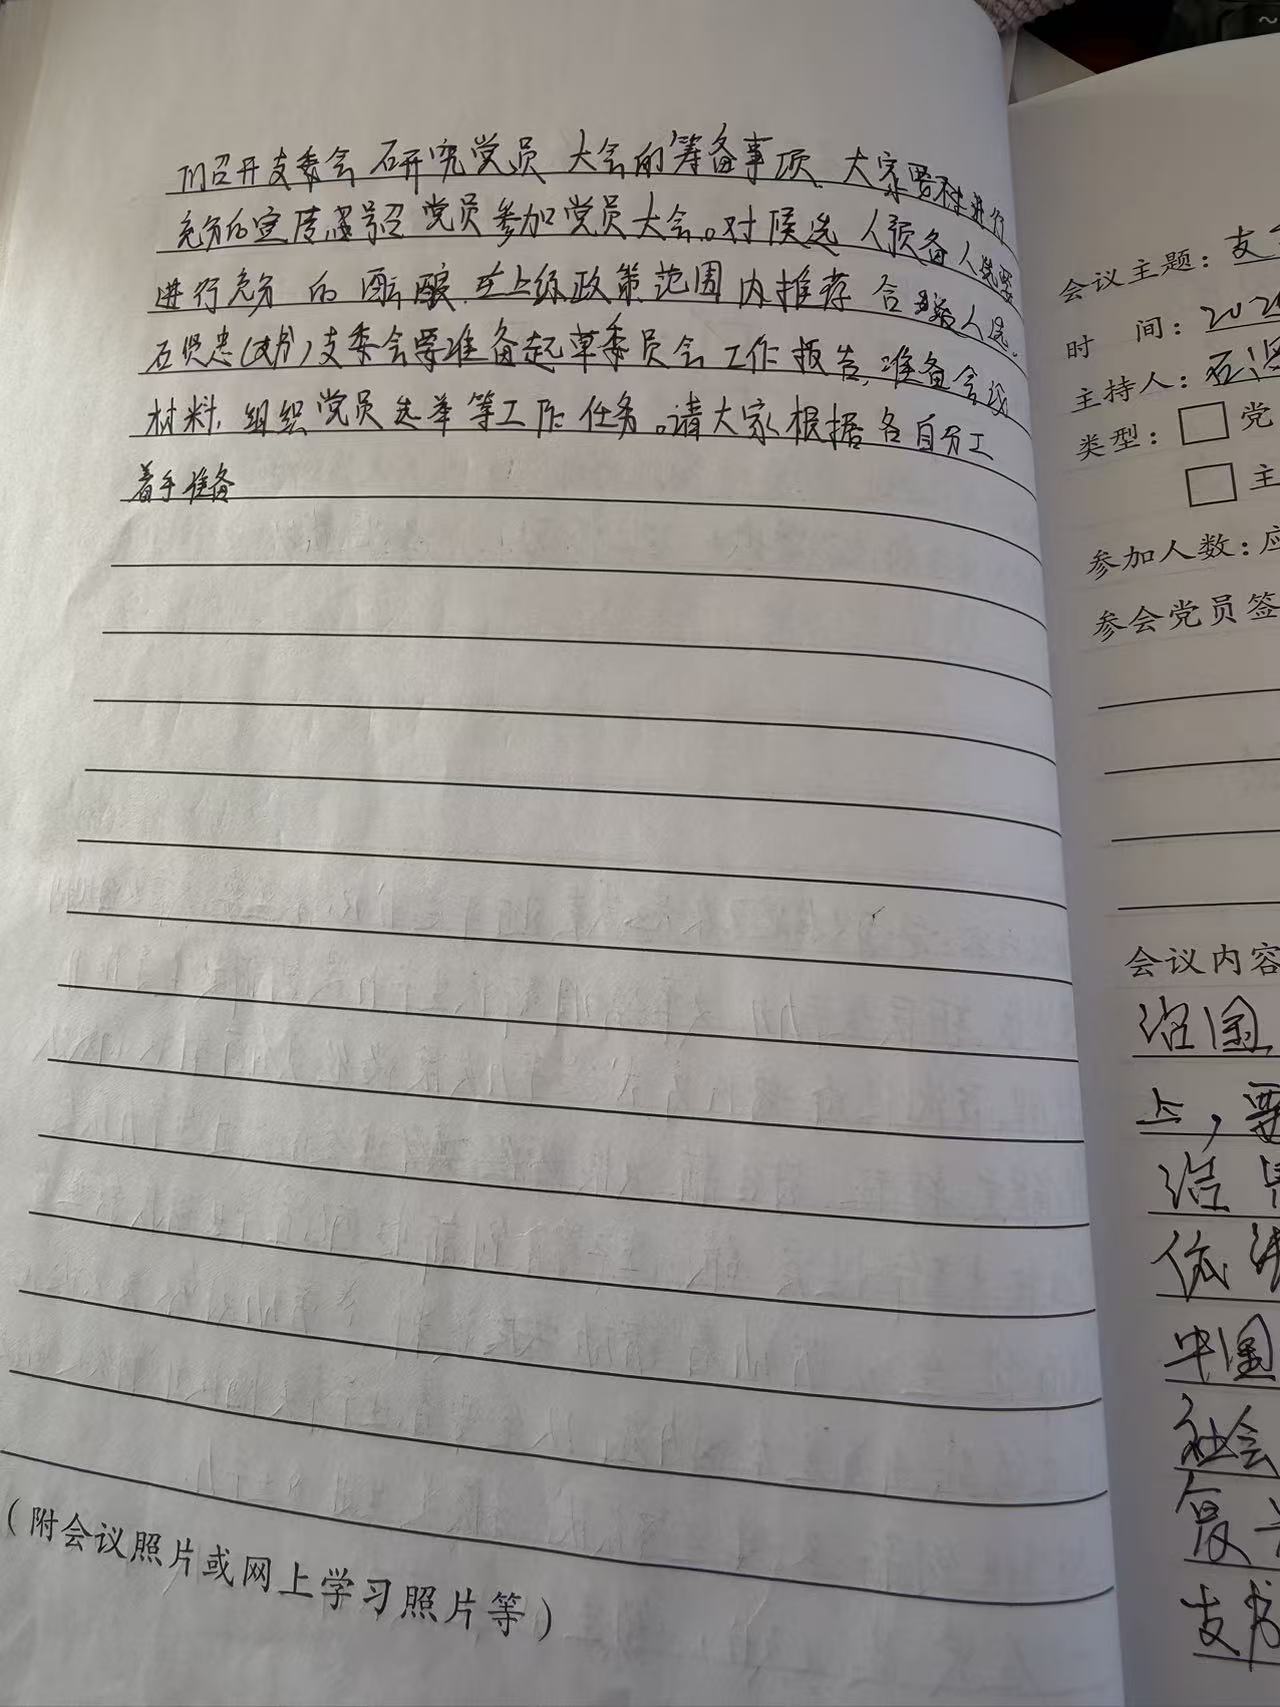 们召开支委会研究党员大会的筹备事项。大家要对进行
充分的宣传号召党员参加党员大会。对候选人预备人选要
进行充分的酝酿.在上级政策范围内推荐合适人选.
石贤忠(支书)支委会要准备起草委员会工作报告,准备会议
材料,组织党员选举等工作任务。请大家根据各自分工
着手准备
(附会议照片或网上学习照片等)
会议主题:支
时 间:202
主持人:石贤
类型:□党
□主
参加人数:应
参会党员签
会议内容
治国
上,要
结
依法
中国
社会
复
支书